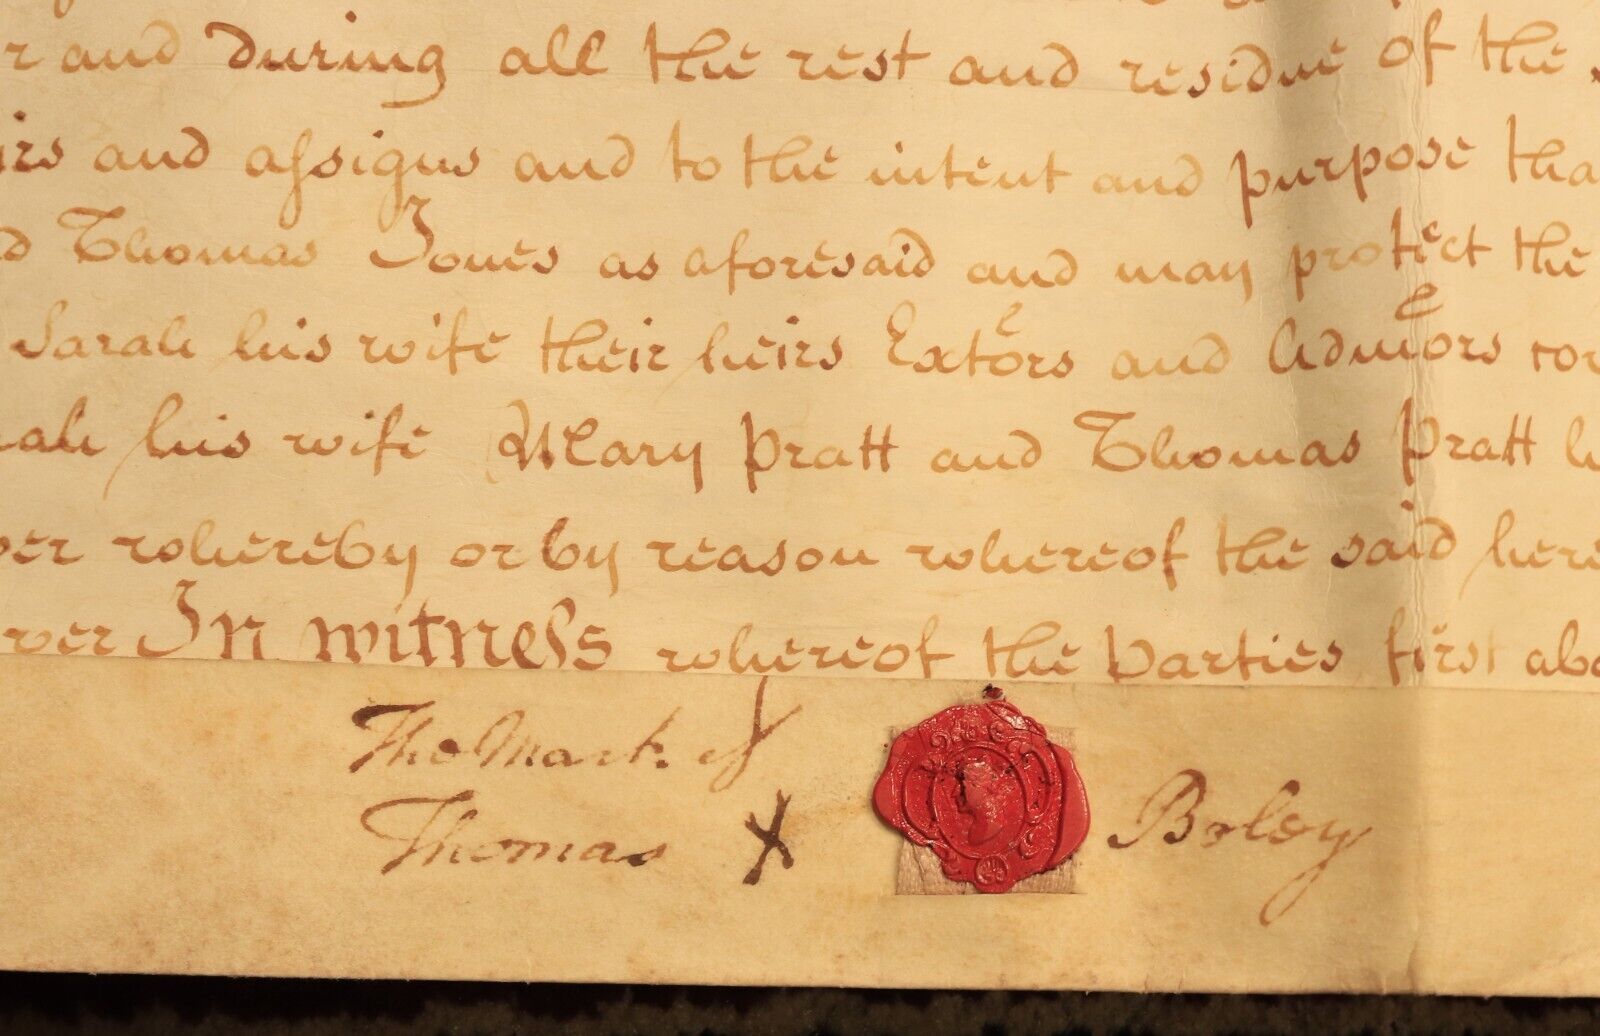 r and during all the rest and residue of the
irs and assigns and to the intent and purpose tha
d Thomas Jones as aforesaid and may protect the
Sarah his wife their heirs Extors and Admors cov
rah his wife Mary Pratt and Thomas Pratt h
ver whereby or by reason whereof the said here
ver In witness whereof the Parties first abo
The Mark of
Thomas X Boley